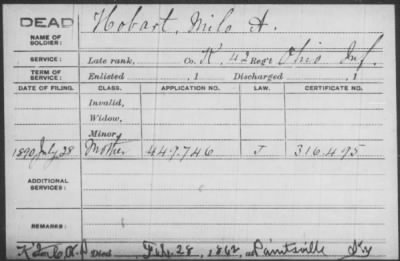 DEAD
NAME OF SOLDIER: Hobart, Milo A.
SERVICE: Late rank, Co. K, 42 Reg't Ohio Inf.
TERM OF SERVICE: Enlisted , 1 Discharged , 1
DATE OF FILING. CLASS. APPLICATION NO. LAW. CERTIFICATE NO.
Invalid,
Widow,
Minor,
1890 July 28 Mother 449.746 J 316.495
ADDITIONAL SERVICES:
REMARKS:
Died Feb. 28, 1862, at Paintsville Ky